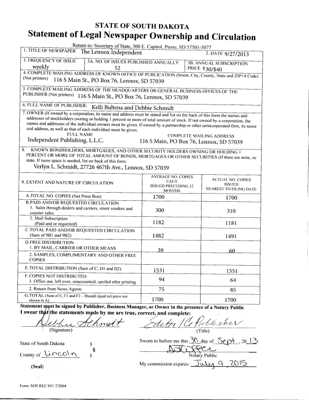 STATE OF SOUTH DAKOTA
Statement of Legal Newspaper Ownership and Circulation
Return to: Secretary of State, 500 E. Capitol, Pierre, SD 57501-5077
1. TITLE OF NEWSPAPER The Lennox Independent
2. DATE 9/27/2013
3. FREQUENCY OF ISSUE
weekly
3A. NO. OF ISSUES PUBLISHED ANNUALLY
52
3B. ANNUAL SUBSCRIPTION
PRICE $30/$40
4. COMPLETE MAILING ADDRESS OF KNOWN OFFICE OF PUBLICATION (Street, City, County, State and ZIP+4 Code)
(Not printers) 116 S Main St., PO Box 76, Lennox, SD 57039
5. COMPLETE MAILING ADDRESS OF THE HEADQUARTERS OR GENERAL BUSINESS OFFICES OF THE
PUBLISHER (Not printers) 116 S Main St., PO Box 76, Lennox, SD 57039
6. FULL NAME OF PUBLISHER Kelli Bultena and Debbie Schmidt
7. OWNER (If owned by a corporation, its name and address must be stated and list on the back of this form the names and
addresses of stockholders owning or holding 1 percent or more of total amount of stock. If not owned by a corporation, the
names and addresses of the individual owners must be given. If owned by a partnership or other unincorporated firm, its name
and address, as well as that of each individual must be given.
FULL NAME
COMPLETE MAILING ADDRESS
Independent Publishing, L.L.C.
116 S Main, PO Box 76, Lennox, SD 57039
8. KNOWN BONDHOLDERS, MORTGAGES, AND OTHER SECURITY HOLDERS OWNING OR HOLDING 1
PERCENT OR MORE OF TOTAL AMOUNT OF BONDS, MORTGAGES OR OTHER SECURITIES (If there are none, so
state. If more space is needed, list on back of this form.
Verlyn L. Schmidt, 27726 467th Ave., Lennox, SD 57039
9. EXTENT AND NATURE OF CIRCULATION
AVERAGE NO. COPIES
EACH
ISSUED PRECEDING 12
MONTHS
ACTUAL NO. COPIES
ISSUED
NEAREST TO FILING DATE
A.TOTAL NO. COPIES (Net Press Run)
1700
1700
B.PAID AND/OR REQUESTED CIRCULATION
1. Sales through dealers and carriers, street vendors and
counter sales.
300
310
2. Mail Subscription
(Paid and or requested)
1182
1181
C.TOTAL PAID AND/OR REQUESTED CIRCULATION
(Sum of 9B1 and 9B2)
1482
1491
D.FREE DISTRIBUTION
1. BY MAIL, CARRIER OR OTHER MEANS
39
60
2. SAMPLES, COMPLIMENTARY AND OTHER FREE
COPIES
E. TOTAL DISTRIBUTION (Sum of C, D1 and D2)
1531
1551
F. COPIES NOT DISTRIBUTED
1. Office use, left over, unaccounted, spoiled after printing
94
64
2. Return from News Agents
75
85
G.TOTAL (Sum of E, F1 and F2 - Should equal net press run
shown in A)
1700
1700
Statement must be signed by Publisher, Business Manager, or Owner in the presence of a Notary Public
I swear that the statements made by me are true, correct, and complete:
Debbie Schmidt
Editor/CoPublisher
(Signature)
(Title)
State of South Dakota )
County of Lincoln )
Sworn to before me this 30 day of Sept, 2013
Notary Public
(Seal)
My commission expires: July 9 2015
Form: SOS REC 051 7/2004